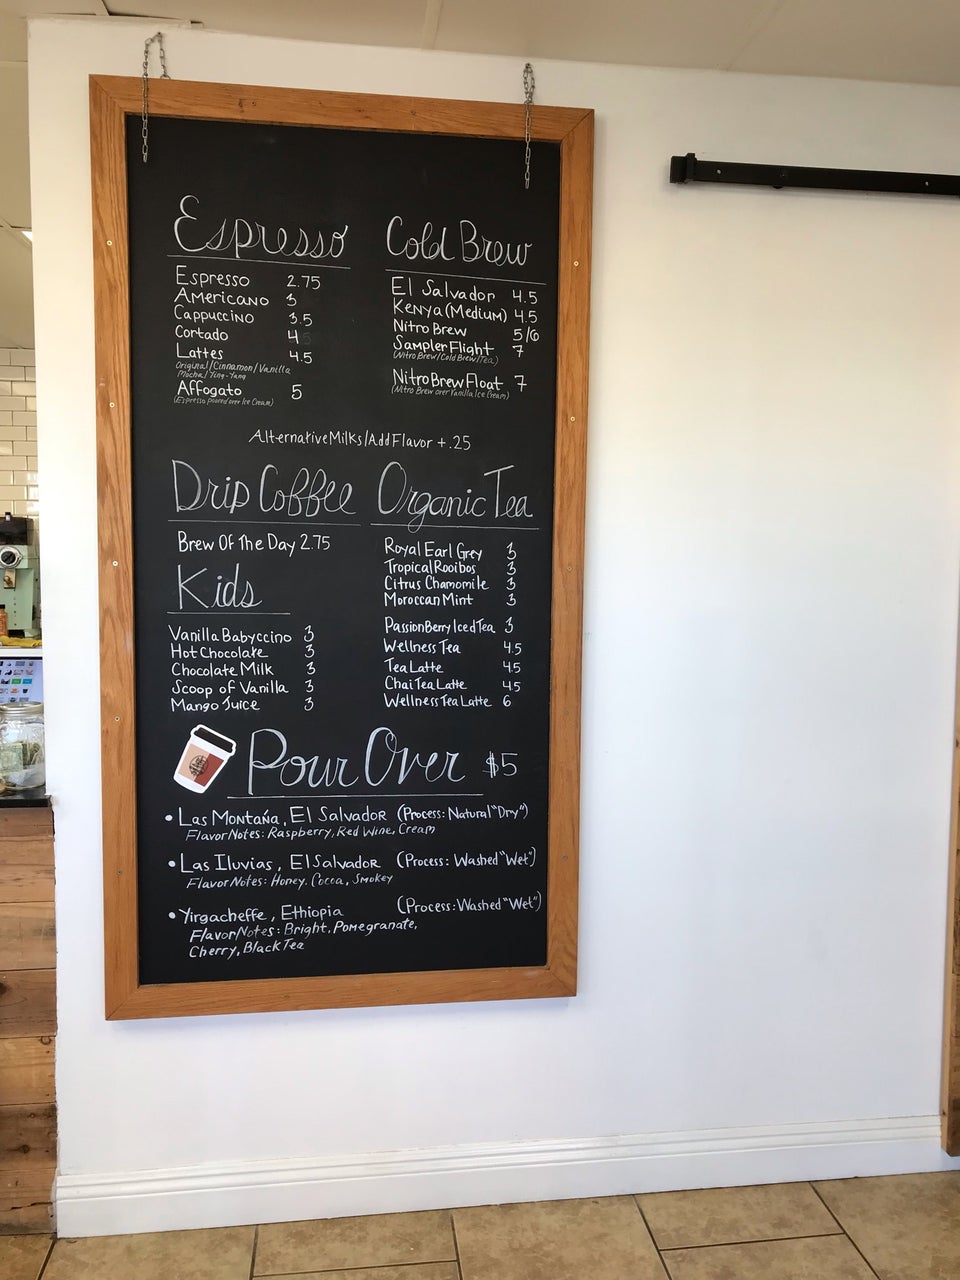 Espresso
Espresso 2.75
Americano 3
Cappuccino 3.5
Cortado 4
Lattes 4.5
Original/Cinnamon/Vanilla
Mocha/Ying-Yang
Affogato 5
(Espresso poured over Ice Cream)
Cold Brew
El Salvador 4.5
Kenya (Medium) 4.5
Nitro Brew 5/6
Sampler Flight 7
(Nitro Brew/Cold Brew/Tea)
Nitro Brew Float 7
(Nitro Brew over Vanilla Ice Cream)
Alternative Milks/Add Flavor +.25
Drip Coffee
Brew Of The Day 2.75
Kids
Vanilla Babyccino 3
Hot Chocolate 3
Chocolate Milk 3
Scoop of Vanilla 3
Mango Juice 3
Organic Tea
Royal Earl Grey 3
Tropical Rooibos 3
Citrus Chamomile 3
Moroccan Mint 3
Passion Berry Iced Tea 3
Wellness Tea 4.5
Tea Latte 4.5
Chai Tea Latte 4.5
Wellness Tea Latte 6
Pour Over $5
• Las Montaña, El Salvador (Process: Natural "Dry")
Flavor Notes: Raspberry, Red Wine, Cream
• Las Iluvias, El Salvador (Process: Washed "Wet")
Flavor Notes: Honey, Cocoa, Smokey
• Yirgacheffe, Ethiopia (Process: Washed "Wet")
Flavor Notes: Bright, Pomegranate,
Cherry, Black Tea